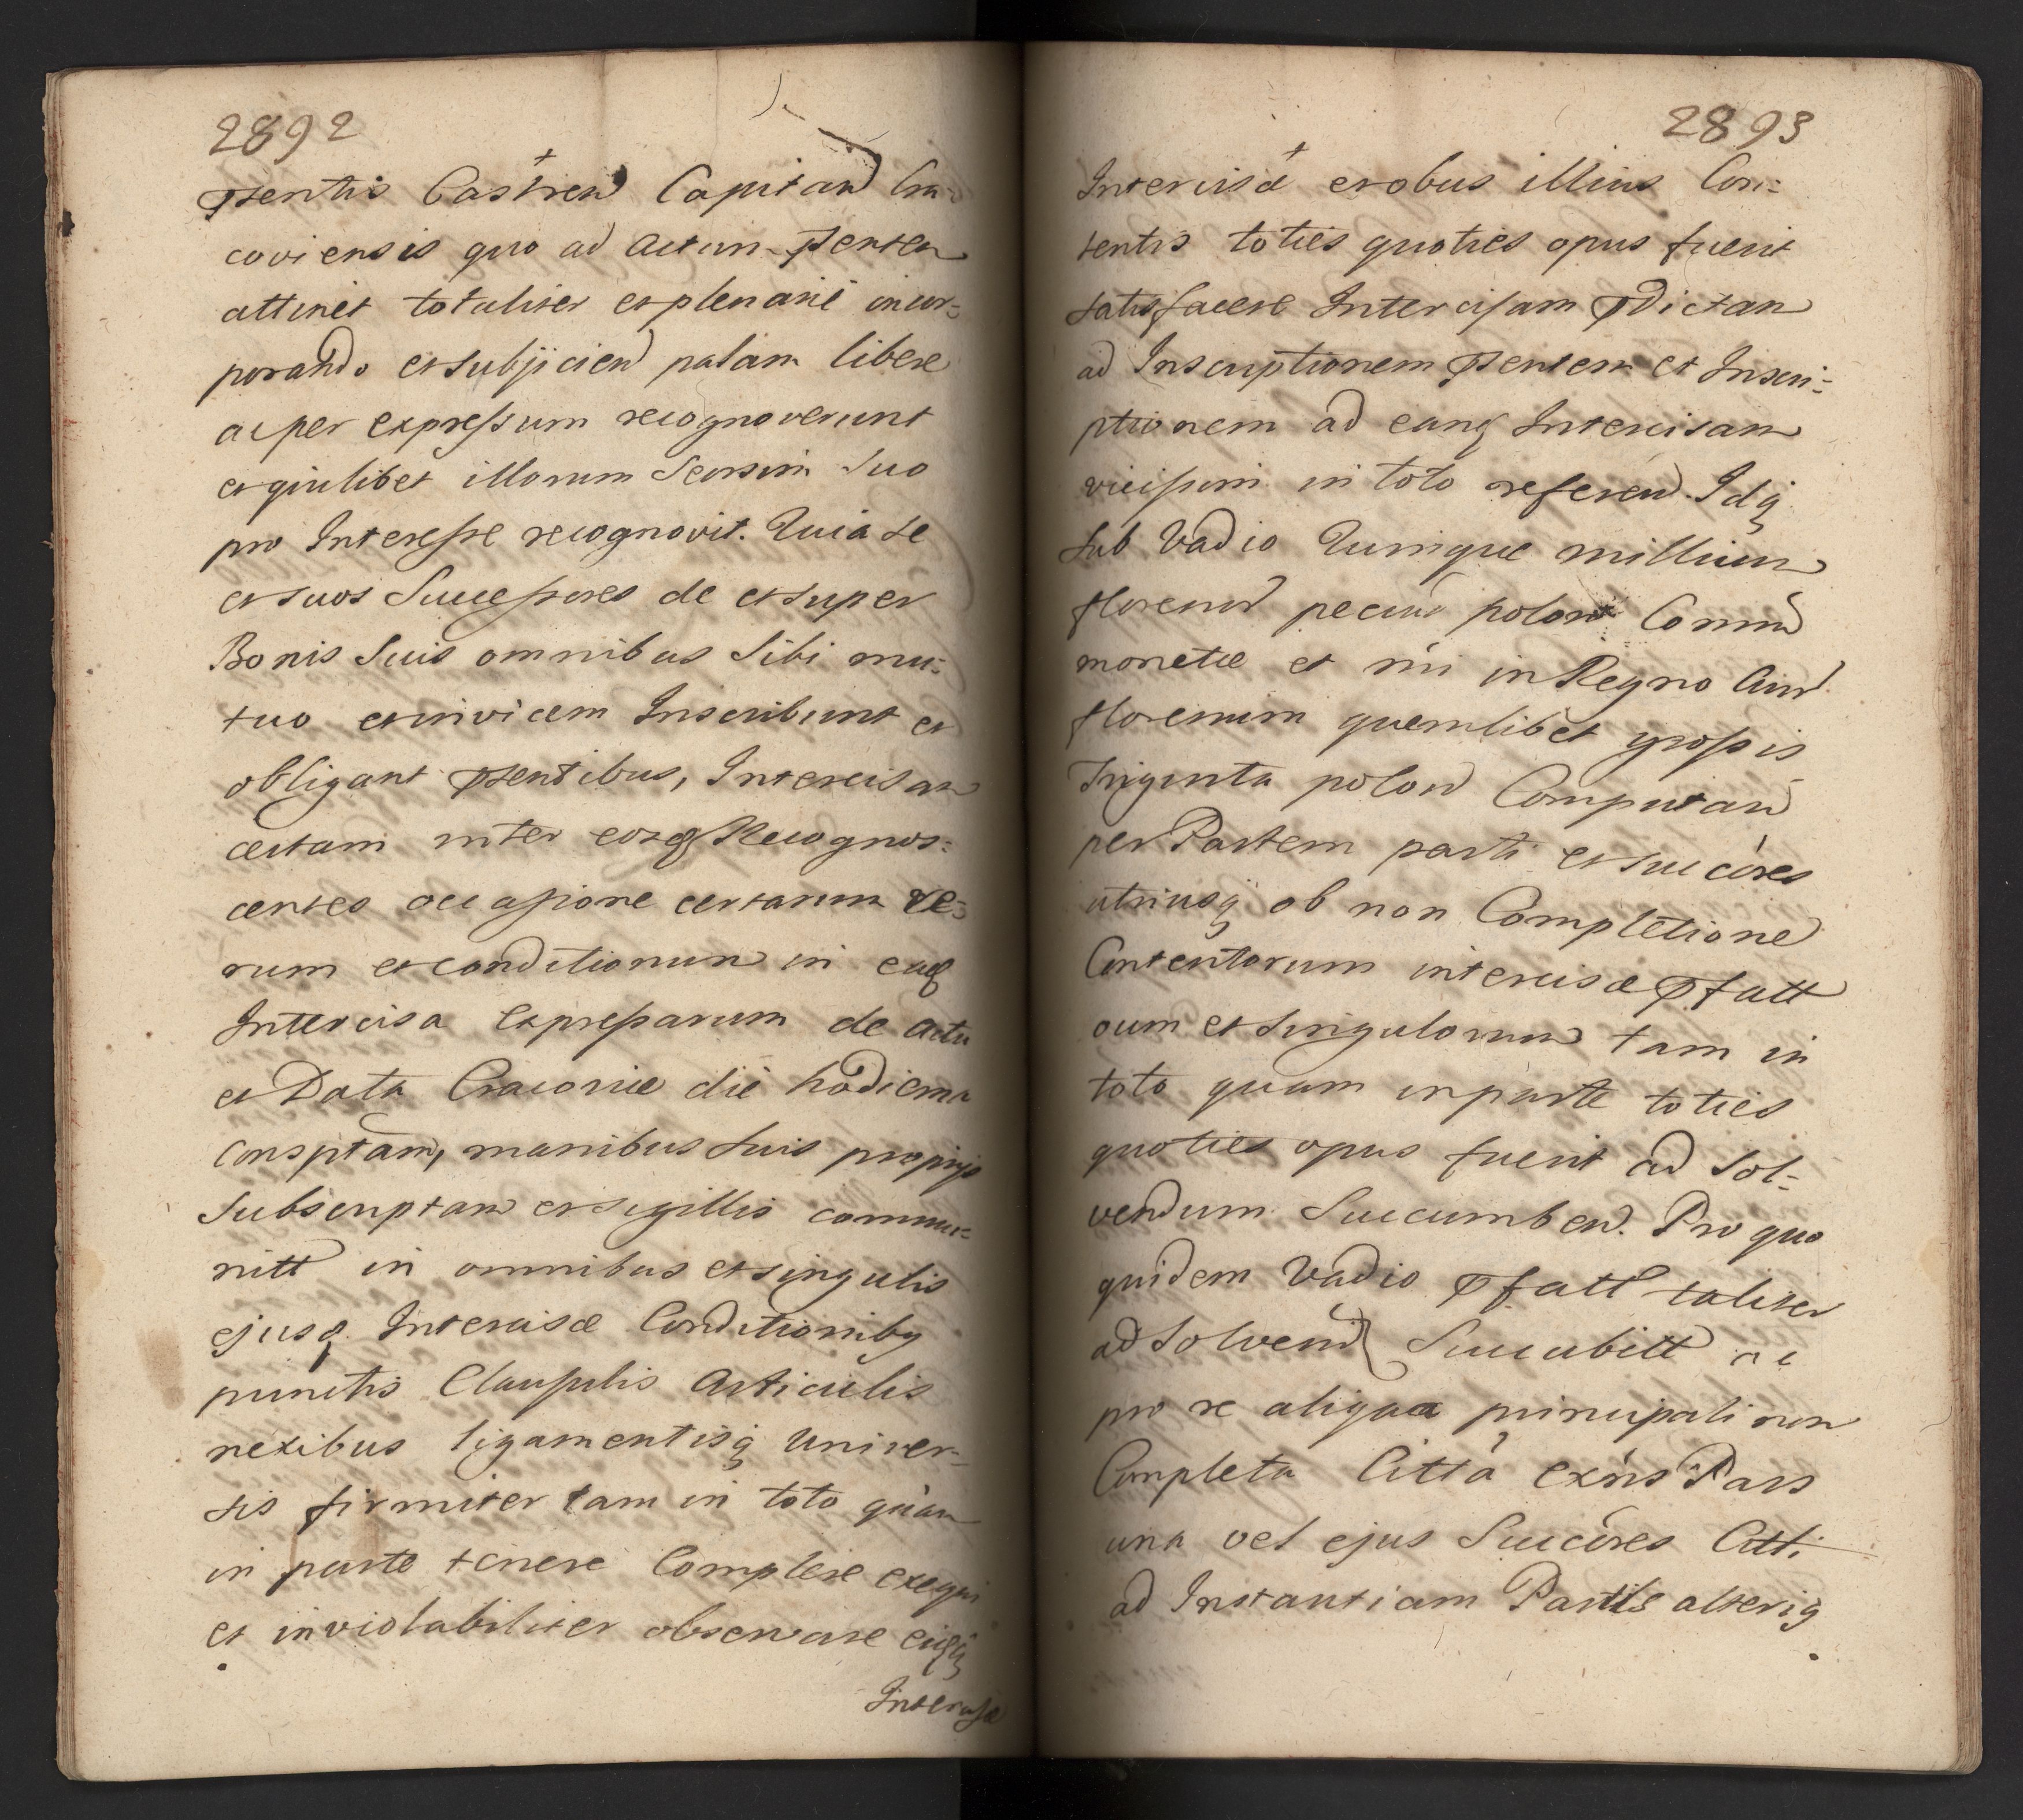 2892
Psentis Castren Capitan Cra-
coviensis quo ad actum Psentem
attinet totaliter et plenarie incor-
porando et subjiciend palam libere
ac per expressum recognoverunt
et quilibet illorum Seorsim Suo
pro Interesse recognovit. Quia se
et suos Successores de et super
Bonis Suis omnibus Sibi mu-
tuo et invicem Inscribunt et
obligant Psentibus, Intercisam
certam inter eosq Recognos-
centes occasione certarum re-
rum et conditionum in eaq
Intercisa expressarum de actu
et Data Cracoviæ die hodierna
Consptam, manibus Suis propijs
Subscriptam et sigillis commu-
nitt in omnibus et singulis
ejusq Intercisæ Conditionibq
punctis Clausulis Articulis
nexibus ligamentisq Univer-
sis firmiter tam in toto quam
in parte tenere Complere exequi
et inviolabiliter observare eisq
Intercisæ
2893
Intercisæ et obus illius Con-
tentis toties quoties opus fuerit
satisfacere Intercisam Pdictam
ad Inscriptionem Psentem et Inscri-
ptionem ad eanq Intercisam
vicissim in toto referend. Idq
sub Vadio Quinque millium
florenor pecun polon Comm̄
monetæ et nri in Regno Curr
florenum quemlibet grossis
Triginta polon Computan
per Partem parti et succores
utriusq ob non Completione
Contentorum intercisæ Pfatt
oum et singulorum tam in
toto quam in parte toties
quoties opus fuerit ad Sol-
vendum Succumben. Pro quo
quidem Vadio Pfatt taliter
ad Solvend Succubitt ac
pro re aliqua principali non
Completa Citta exñs Pars
una vel ejus Succores Citti
ad Instantiam Partis alteriq